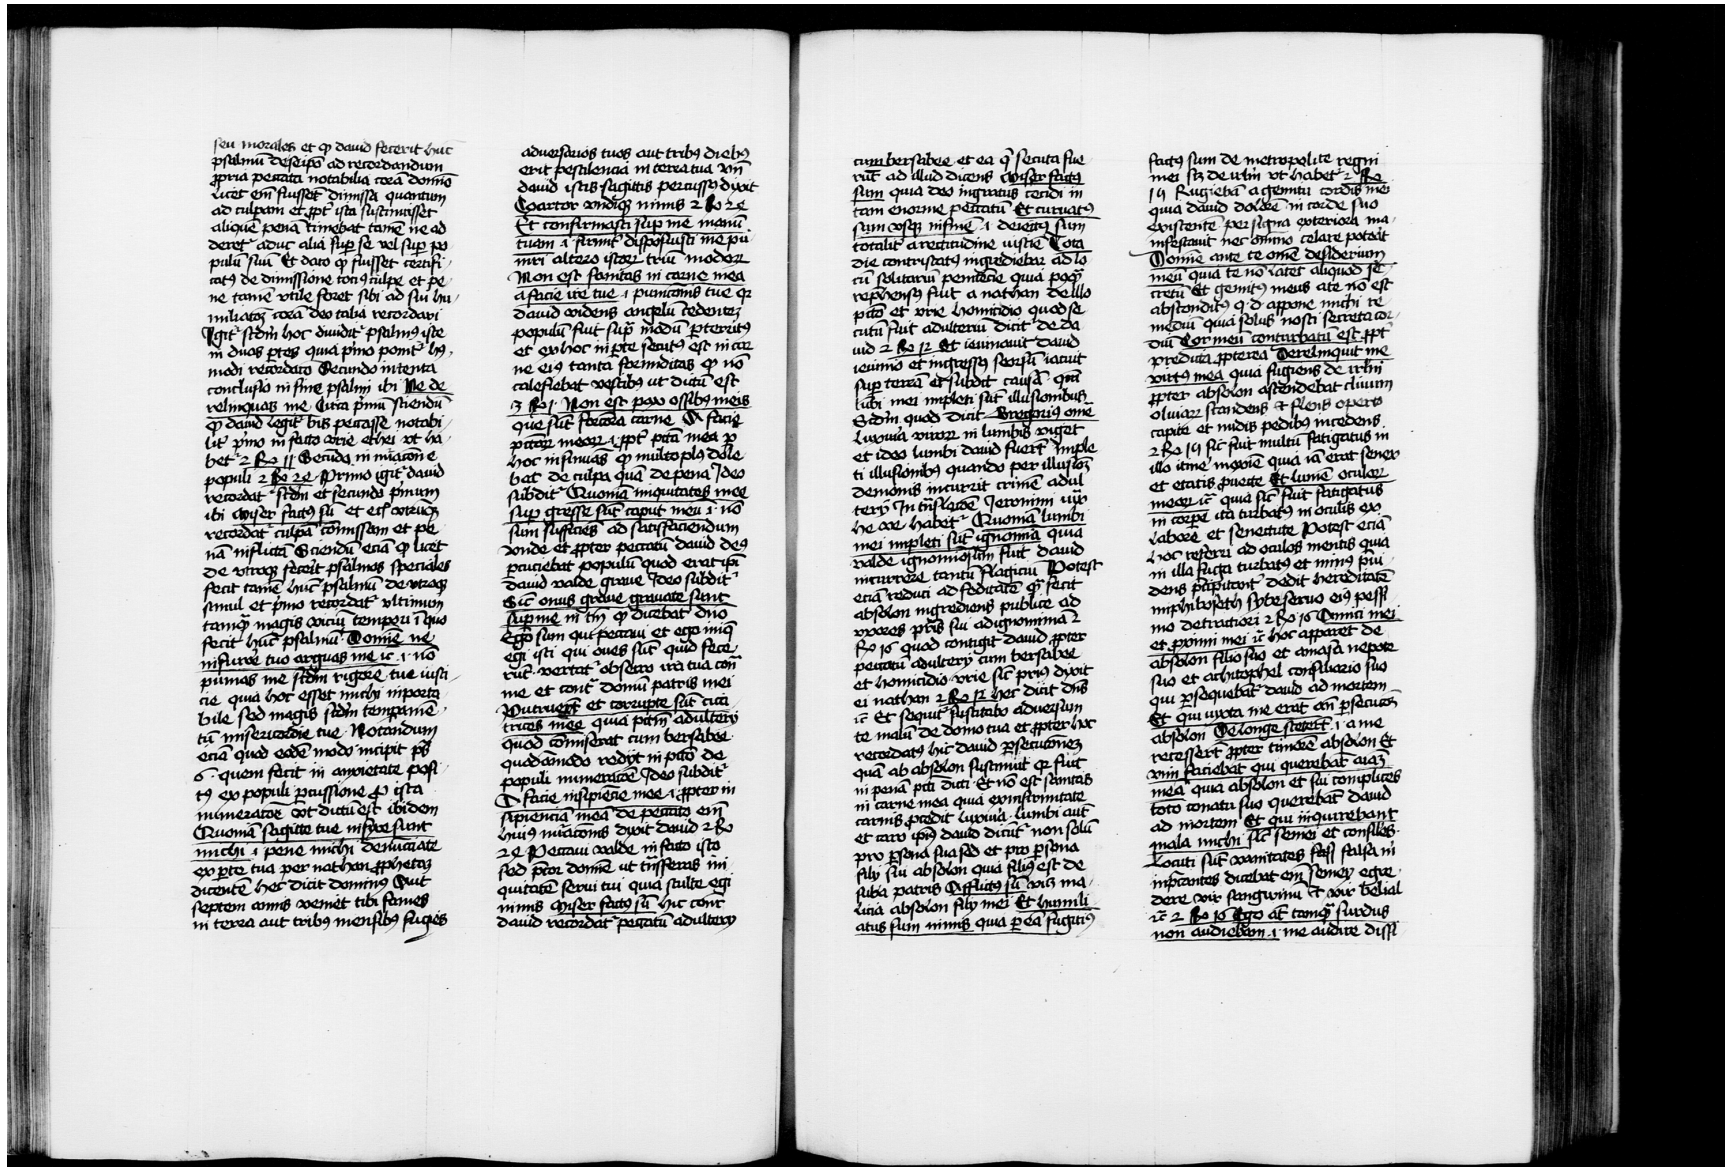 seu morales et ꝙ dauid fecerit hūc
psalmū de seipō ad recordandum
ꝓpria peccata notabilia corā domīo
licet em̄ fuisset dimissa quantum
ad culpam et ꝓpt̄ ista sustinuisset
aliquē penā timebat tamē ne ad
deret᷑ aduc alia suꝑ se vel suꝑ po
pulū suū Et dato ꝙ fuisset certifi
catꝰ de dimissione tociꝰ culpe et pe
ne tamē vtile foret sibi ad sui hu
miliatōꝫ corā deo talia recordari
Igit᷑ scd̄m hoc diuidit᷑ psalmꝰ iste
in duos ꝑtes quia pͥmo ponit᷑ hꝰ
modi recordatō Secundo intenta
conclusio in fine psalmi ibi Ne de
relinquas me Circa pͥmū sciendū
ꝙ dauid legit᷑ bis peccasse notabi
lit᷑ pͥmo in facto vrie ethei vt ha
bet᷑ 2 Ro 11 Secūdo in nūeracōne
populi 2 Ro 24 Primo igit᷑ dauid
recordat᷑ scd̄m et secundo pͥmum
ibi Miser factꝰ sū et est vtrūqꝫ
recordat᷑ culpā cōmissam et pe
nā inflictā Sciendū eciā ꝙ licet
de vtroqꝫ fecit psalmos speciales
fecit tamē hūc psalmū de vtroqꝫ
simul et pͥmo recordat᷑ vltimum
tamqᷓ magis viciū tempori ī quo
fecit hūc psalmū Domīe ne
in furore tuo arguas me ꝛc ·i· nō
punias me scd̄m rigorē tue iusti
cie quia hoc esset michi inporta
bile sed magis scd̄m temꝑamē
tū misericordie tue Notandum
eciā quod eodē modo incipit pͣs
6 quem fecit in anxietate posi
tꝰ ex populi ꝑcussione ꝓ ista
numeracōe vt dictū est ibidem
Quoniā sagitte tue infixe sunt
michi ·i· pene michi denūciate
ex ꝑte tua per nathan ꝓphetaꝫ
dicentē hec dicit dominꝰ Aut
septem annis veniet tibi fames
in terra aut tribꝰ mensibꝰ fugies
aduersarios tuos aut tribꝰ diebꝰ
erit pestilencia in terra tua vn̄
dauid istis sagittis percussꝰ dixit
Coartor vndiqꝫ nimis 2 Ro 24
Et confirmasti suꝑ me manū
tuam ·i· firmit᷑ disposuisti me pu
niri altero istoꝝ triū modoꝝ
Non est sanitas in carne mea
a facie ire tue ·i· punicōnis tue qꝛ
dauid videns angelū cedenteꝫ
populū fuit supͣ modū ꝑterritꝰ
et ex hoc in ꝑte secutꝰ est in car
ne eiꝰ tanta formiditas ꝙ nō
calefiebat vestibꝰ ut dictū est
3 Ro 1 Non est pax ossibꝰ meis
que sūt fortiora carne A facie
pctōꝝ meoꝝ ·i· ꝓpt̄ pctā mea ꝑ
hoc insinuās ꝙ multo plꝰ dole
bat de culpa quā de pena Ideo
subdit᷑ Quoniā iniquitates mee
suꝑ gresse sūt caput meū ·i· nō
sum sufficiēs ad satisfaciendum
vnde et ꝓpter peccatū dauid deꝰ
ꝑcuciebat populū quod erat ipī
dauid valde graue Ideo subdit᷑
Sic̄ onus graue grauate sunt
suꝑ me in tm̄ ꝙ dicebat dn̄o
Ego sum qui peccaui et ego iniq̄
egi isti qui oues sūt quid fece
rūt vertat᷑ obsecro ira tua cont᷑
me et cont᷑ domū patris mei
Putruerūt et corrupte sūt cica
trices mee quia pctm̄ adulterij
quod cōmiserat cum bersabee
quodāmodo redijt in pctō de
populi numeracōe Ideo subdit᷑
A facie insipiēcie mee ·i· ꝓpter in
sipienciā meā de peccato em̄
huiꝰ nūeracōnis dixit dauid 2 Ro
24 Peccaui valde in facto isto
sed p̄cor domīe ut tn̄sferas ini
quitatē serui tui quia stulte egi
nimis Miser factꝰ sū hic cont᷑
dauid recordat᷑ peccatū adulterij
cum bersabee et ea q̄ secuta fue
rūt ad illud dicens Miser factꝰ
sum quia deo ingratus cecidi in
tam enorme peccatū Et curuatꝰ
sum vsqꝫ in finē ·i· deiectꝰ sum
totalit᷑ a rectitudine iusticie Tota
die contristatꝰ ingrediebar ad lo
cū solitariū penitēcie quia postqᷓ
rep̄hensꝰ fuit a nathan de illo
pctō et vrie homicidio quod se
cutū fuit adulteriū dicit᷑ de da
uid 2 Ro 12 Et ieiunauit dauid
ieiunio et ingressꝰ seorsū iacuit
suꝑ terrā et subdit causā qm̄
lūbi mei impleti sūt illusionibus
Scd̄m quod dicit Gregorius om̄e
luxuria viroꝝ in lumbis viget
et ideo lumbi dauid fuerūt imple
ti illusionibꝰ quando per illusionē
demonis incurrit crimē adul
terij In trn̄slacōe Ieronimi iux͛
he ve habet᷑ Quoniā lumbi
mei impleti sūt ignomīa quia
valde ignominiosū fuit dauid
incurrere tantū flagiciū Potest
eciā reduci ad feditatē qᷓ fecit
absolon ingrediens publice ad
vxores pr̄is sui ad ignominiā 2
Ro 16 quod contigit dauid ꝓpter
peccatū adulterij cum bersabee
et homicidio vrie sic̄ prius dixit
ei nathan 2 Ro 12 hec dicit dn̄s
ꝛc Et sequit᷑ suscitabo aduersum
te malū de domo tua et ꝓpter hoc
recordatꝰ hic dauid ꝑsecutionē
quā ab absolon sustinuit qꝛ fuit
in penā pcti dicti Et nō est sanitas
in carne mea quia ex infirmitate
carnis ꝓcedit luxuria lumbi aūt
et caro ipīꝰ dauid dicūt᷑ non solū
pro ꝑsona sua sed et pro ꝑsona
filij sui absolon quia filiꝰ est de
subā patris Afflictꝰ sū vicꝫ ma
licia absolon filij mei Et humili
atus sum nimis quia ꝑ eū fugatꝰ
factꝰ sum de metropolite regni
mei scꝫ de irlm̄ vt habet᷑ 2 Ro
15 Rugiebā a gemitu cordis mei
quia dauid dolorē in corde suo
existentē per signa exteriora ma
nifestauit nec omīo celare poterat
Domīe ante te om̄e desiderium
meū quia te nō latet aliquod se
cretū Et gemitus meus a te nō est
absconditꝰ q·d· appone michi re
mediū quia solus nosti secreta cor
diū Cor meū conturbatū est ꝓpt᷑
predicta ꝓpterea Dereliquit me
virtus mea quia fugiens de irlm̄
ꝓpter absolon ascendebat cliuum
oliuaꝝ scandens ⁊ flens operto
capite et nudis pedibus incedens
2 Ro 15 sic̄ fuit multū fatigatus in
illo itīne maxīe quia iā erat senex
et etatis ꝓuecte Et lumē oculoꝝ
meoꝝ ꝛc quia sic̄ fuit fatigatus
in corpe ita turbatꝰ in oculis ex
labore et senectute Potest eciā
hoc referri ad oculos mentis quia
in illa fuga turbatꝰ et minꝰ ꝓui
dens p̄cipitant᷑ dedit hereditatē
miphiboseth sybe seruo eiꝰ pessi
mo detractori 2 Ro 16 Amici mei
et ꝓximi mei ꝛc hoc apparet de
absolon filio suo et amasa nepote
suo et achitophel consiliario suo
qui ꝑsequebāt᷑ dauid ad mortem
Et qui iuxta me erāt an̄ ꝑsecutōꝫ
absolon De longe steterūt ·i· a me
recesserūt ꝓpter timorē absolon Et
vim faciebāt qui querebāt aīaꝫ
meā quia absolon et sui complices
toto conatu suo querebāt dauid
ad mortem Et qui inquirebant
mala michi sic̄ semei et consiles
Locuti sūt vanitates falsa in
inp̄cantes dicebat em̄ semey egre
dere vir sanguinū et vir belial
ꝛc 2 Ro 16 Ego aūt tamqᷓ surdus
non audiebam ·i· me audire dissi